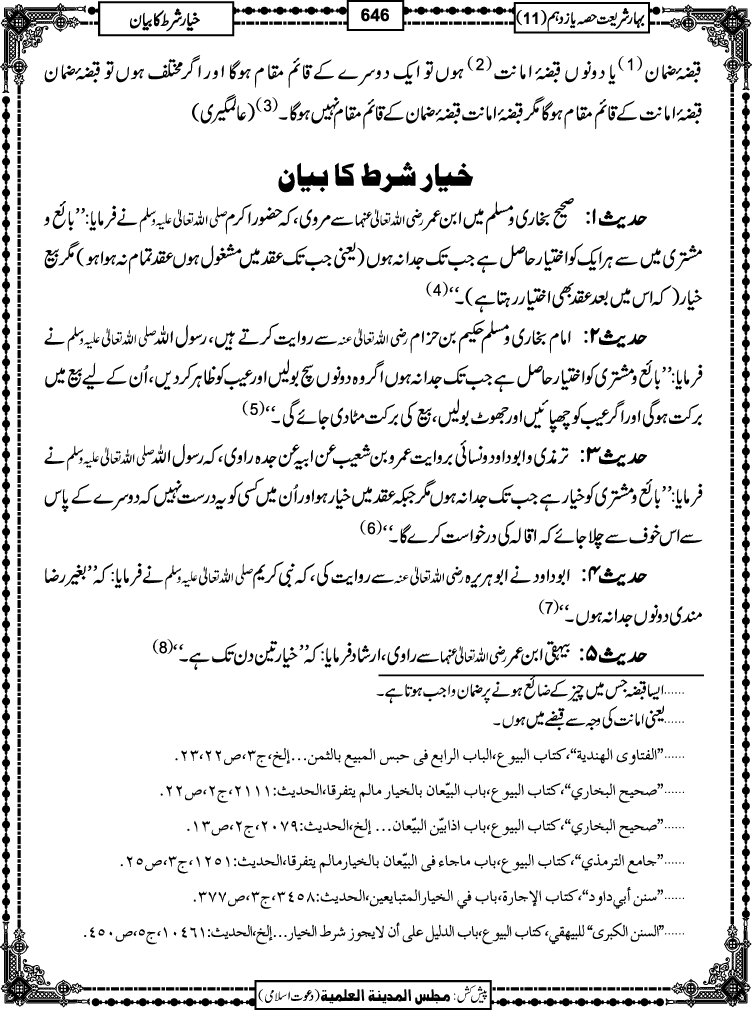 بہار شریعت حصہ یازدہم (11)
646
خیار شرط کا بیان
قبضۂ ضمان(1) یا دونوں قبضۂ امانت(2) ہوں تو ایک دوسرے کے قائم مقام ہوگا اور اگر مختلف ہوں تو قبضۂ ضمان
قبضۂ امانت کے قائم مقام ہوگا مگر قبضۂ امانت قبضۂ ضمان کے قائم مقام نہیں ہوگا۔(3) (عالمگیری)
خیار شرط کا بیان
حدیث ۱: صحیح بخاری و مسلم میں ابن عمر رضی اللہ تعالیٰ عنہما سے مروی، کہ حضور اکرم صلی اللہ تعالیٰ علیہ وسلم نے فرمایا: ’’بائع و
مشتری میں سے ہر ایک کو اختیار حاصل ہے جب تک جدا نہ ہوں (یعنی جب تک عقد میں مشغول ہوں عقد تمام نہ ہوا ہو) مگر بیع
خیار (کہ اس میں بعد عقد بھی اختیار رہتا ہے)۔‘‘(4)
حدیث ۲: امام بخاری و مسلم حکیم بن حزام رضی اللہ تعالیٰ عنہ سے روایت کرتے ہیں، رسول اللہ صلی اللہ تعالیٰ علیہ وسلم نے
فرمایا: ’’بائع و مشتری کو اختیار حاصل ہے جب تک جدا نہ ہوں اگر وہ دونوں سچ بولیں اور عیب کو ظاہر کردیں، اُن کے لیے بیع میں
برکت ہوگی اور اگر عیب کو چھپائیں اور جھوٹ بولیں، بیع کی برکت مٹادی جائے گی۔‘‘(5)
حدیث ۳: ترمذی و ابوداود و نسائی بروایت عمرو بن شعیب عن ابیہ عن جدہ راوی، کہ رسول اللہ صلی اللہ تعالیٰ علیہ وسلم نے
فرمایا: ’’بائع و مشتری کو خیار ہے جب تک جدا نہ ہوں مگر جبکہ عقد میں خیار ہو اور اُن میں کسی کو یہ درست نہیں کہ دوسرے کے پاس
سے اس خوف سے چلا جائے کہ اقالہ کی درخواست کرے گا۔‘‘(6)
حدیث ۴: ابوداود نے ابوہریرہ رضی اللہ تعالیٰ عنہ سے روایت کی، کہ نبی کریم صلی اللہ تعالیٰ علیہ وسلم نے فرمایا: کہ ’’بغیر رضا
مندی دونوں جدا نہ ہوں۔‘‘(7)
حدیث ۵: بیہقی ابن عمر رضی اللہ تعالیٰ عنہما سے راوی، ارشاد فرمایا: کہ ’’خیار تین دن تک ہے۔‘‘(8)
......ایسا قبضہ جس میں چیز کے ضائع ہونے پر ضمان واجب ہوتا ہے۔
......یعنی امانت کی وجہ سے قبضے میں ہوں۔
......”الفتاوی الهندية“،كتاب البيوع،الباب الرابع فى حبس المبيع بالثمن...إلخ،ج٣،ص٢٢،٢٣.
......”صحيح البخاري“،كتاب البيوع،باب البيّعان بالخيار مالم يتفرقا،الحديث:٢١١١،ج٢،ص٢٢.
......”صحيح البخاري“،كتاب البيوع،باب اذابيّن البيّعان... إلخ،الحديث:٢٠٧٩،ج٢،ص١٣.
......”جامع الترمذي“،كتاب البيوع،باب ماجاء فى البيّعان بالخيارمالم يتفرقا،الحديث:١٢٥١،ج٣،ص٢٥.
......”سنن أبي داود“،كتاب الإجارة،باب في الخيارالمتبايعين،الحديث:٣٤٥٨،ج٣،ص٣٧٧.
......”السنن الكبرى“ للبيهقي،كتاب البيوع،باب الدليل على أن لايجوز شرط الخيار...إلخ،الحديث:١٠٤٦١،ج٥،ص٤٥٠.
پیش کش: مجلس المدينة العلمية (دعوت اسلامی)